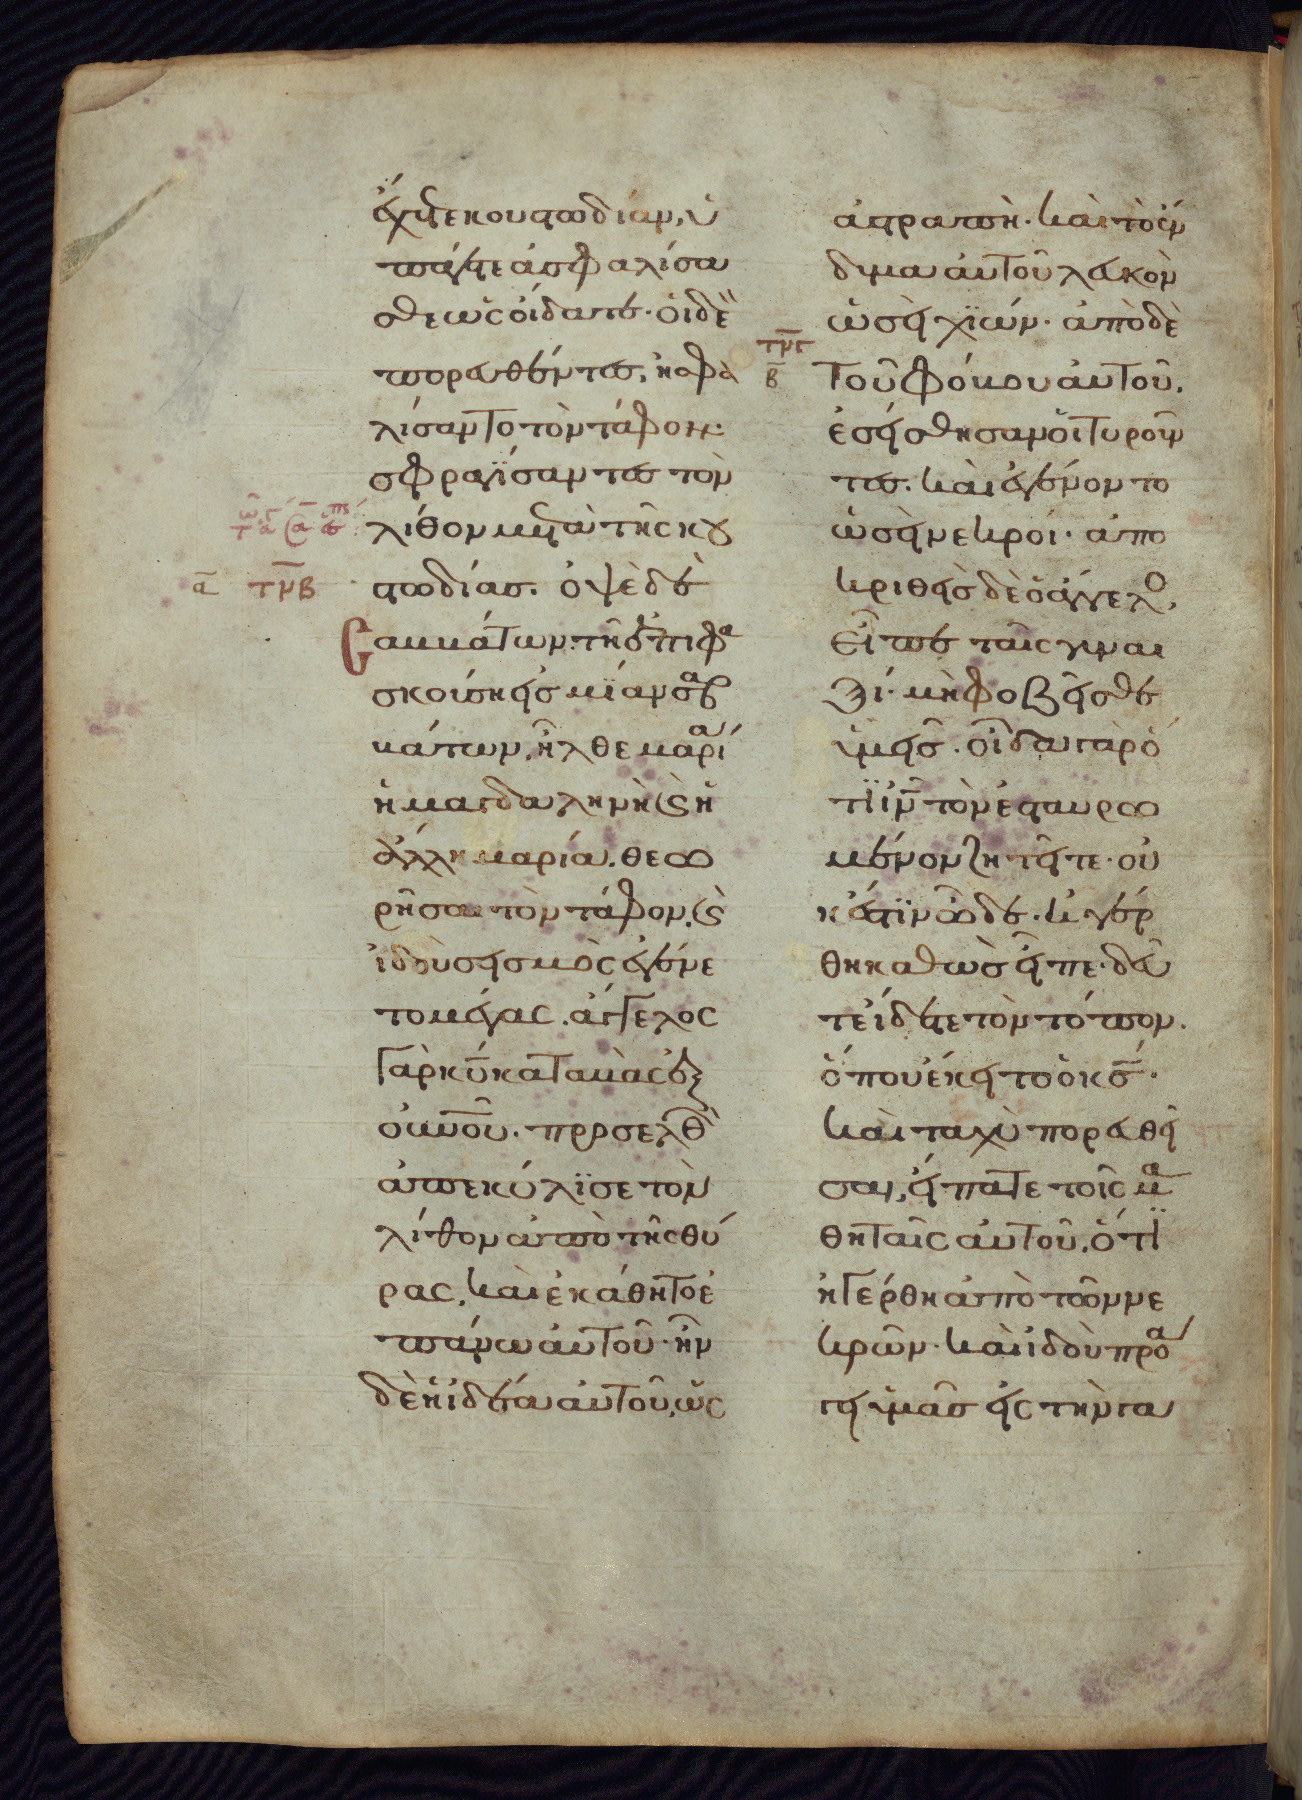 ἔχετε κουστωδίαν, ὑ
πάγετε ἀσφαλίσα
σθε ὡς οἴδατε· οἱ δὲ
πορευθέντες, ἠσφα
λίσαντο τὸν τάφον·
σφραγίσαντες τὸν
λίθον μετὰ τῆς κου
στωδίας. ὀψὲ δὲ
σαμμάτων· τῆ ἐπιφω
σκούση εἰς μίαν σαβ
βάτων, ἦλθε μαρία
ἡ μαγδαληνὴ ϗ ἡ
ἄλλη μαρία. θεω
ρῆσαι τὸν τάφον, ϗ
ἰδοὺ σεισμὸς ἐγένε
το μέγας. ἄγγελος
γὰρ κυ καταβὰς ἐξ
οὐνοῦ. προσελθὼν
ἀπεκύλϊσε τὸν
λίθον ἀπὸ τῆς θύ
ρας, καὶ ἐκάθητο ἐ
πάνω αὐτοῦ· ἦν
δὲ ἡ ἰδέα αὐτοῦ, ὡς
τμγ
β
τμβ
α
ἀστραπὴ. καὶ τὸ ἔν
διμα αὐτοῦ λευκὸν
ὡσεὶ χϊών· ἀπὸ δὲ
τοῦ φόβου αὐτοῦ,
ἐσείσθησαν οἱ τυροῦν
τες. καὶ ἐγένοντο
ὡσεὶ νεκροί· ἀπο
κριθεὶς δὲ ὁ ἄγγελος,
εἶπε ταῖς γυναι
ξί· μὴ φοβεῖσθε
ὑμεῖς. οἶδα γὰρ ὅ
τϊ ἰν τὸν ἐσταυρω
μένον ζητεῖτε· οὐ
κ ἔστϊν ὧδε. ἠγέρ
θη καθὼς εἶπε· δεῦ
τε ἴδετε τὸν τόπον.
ὅπου ἔκειτο ὁ κς·
καὶ ταχὺ πορευθεῖ
σαι, εἴπατε τοῖς μα
θηταῖς αὐτοῦ, ὅτϊ
ἠγέρθη ἀπὸ τῶν νε
κρῶν. καὶ ἰδοὺ προά
γει ὑμᾶς εἰς τὴν γα